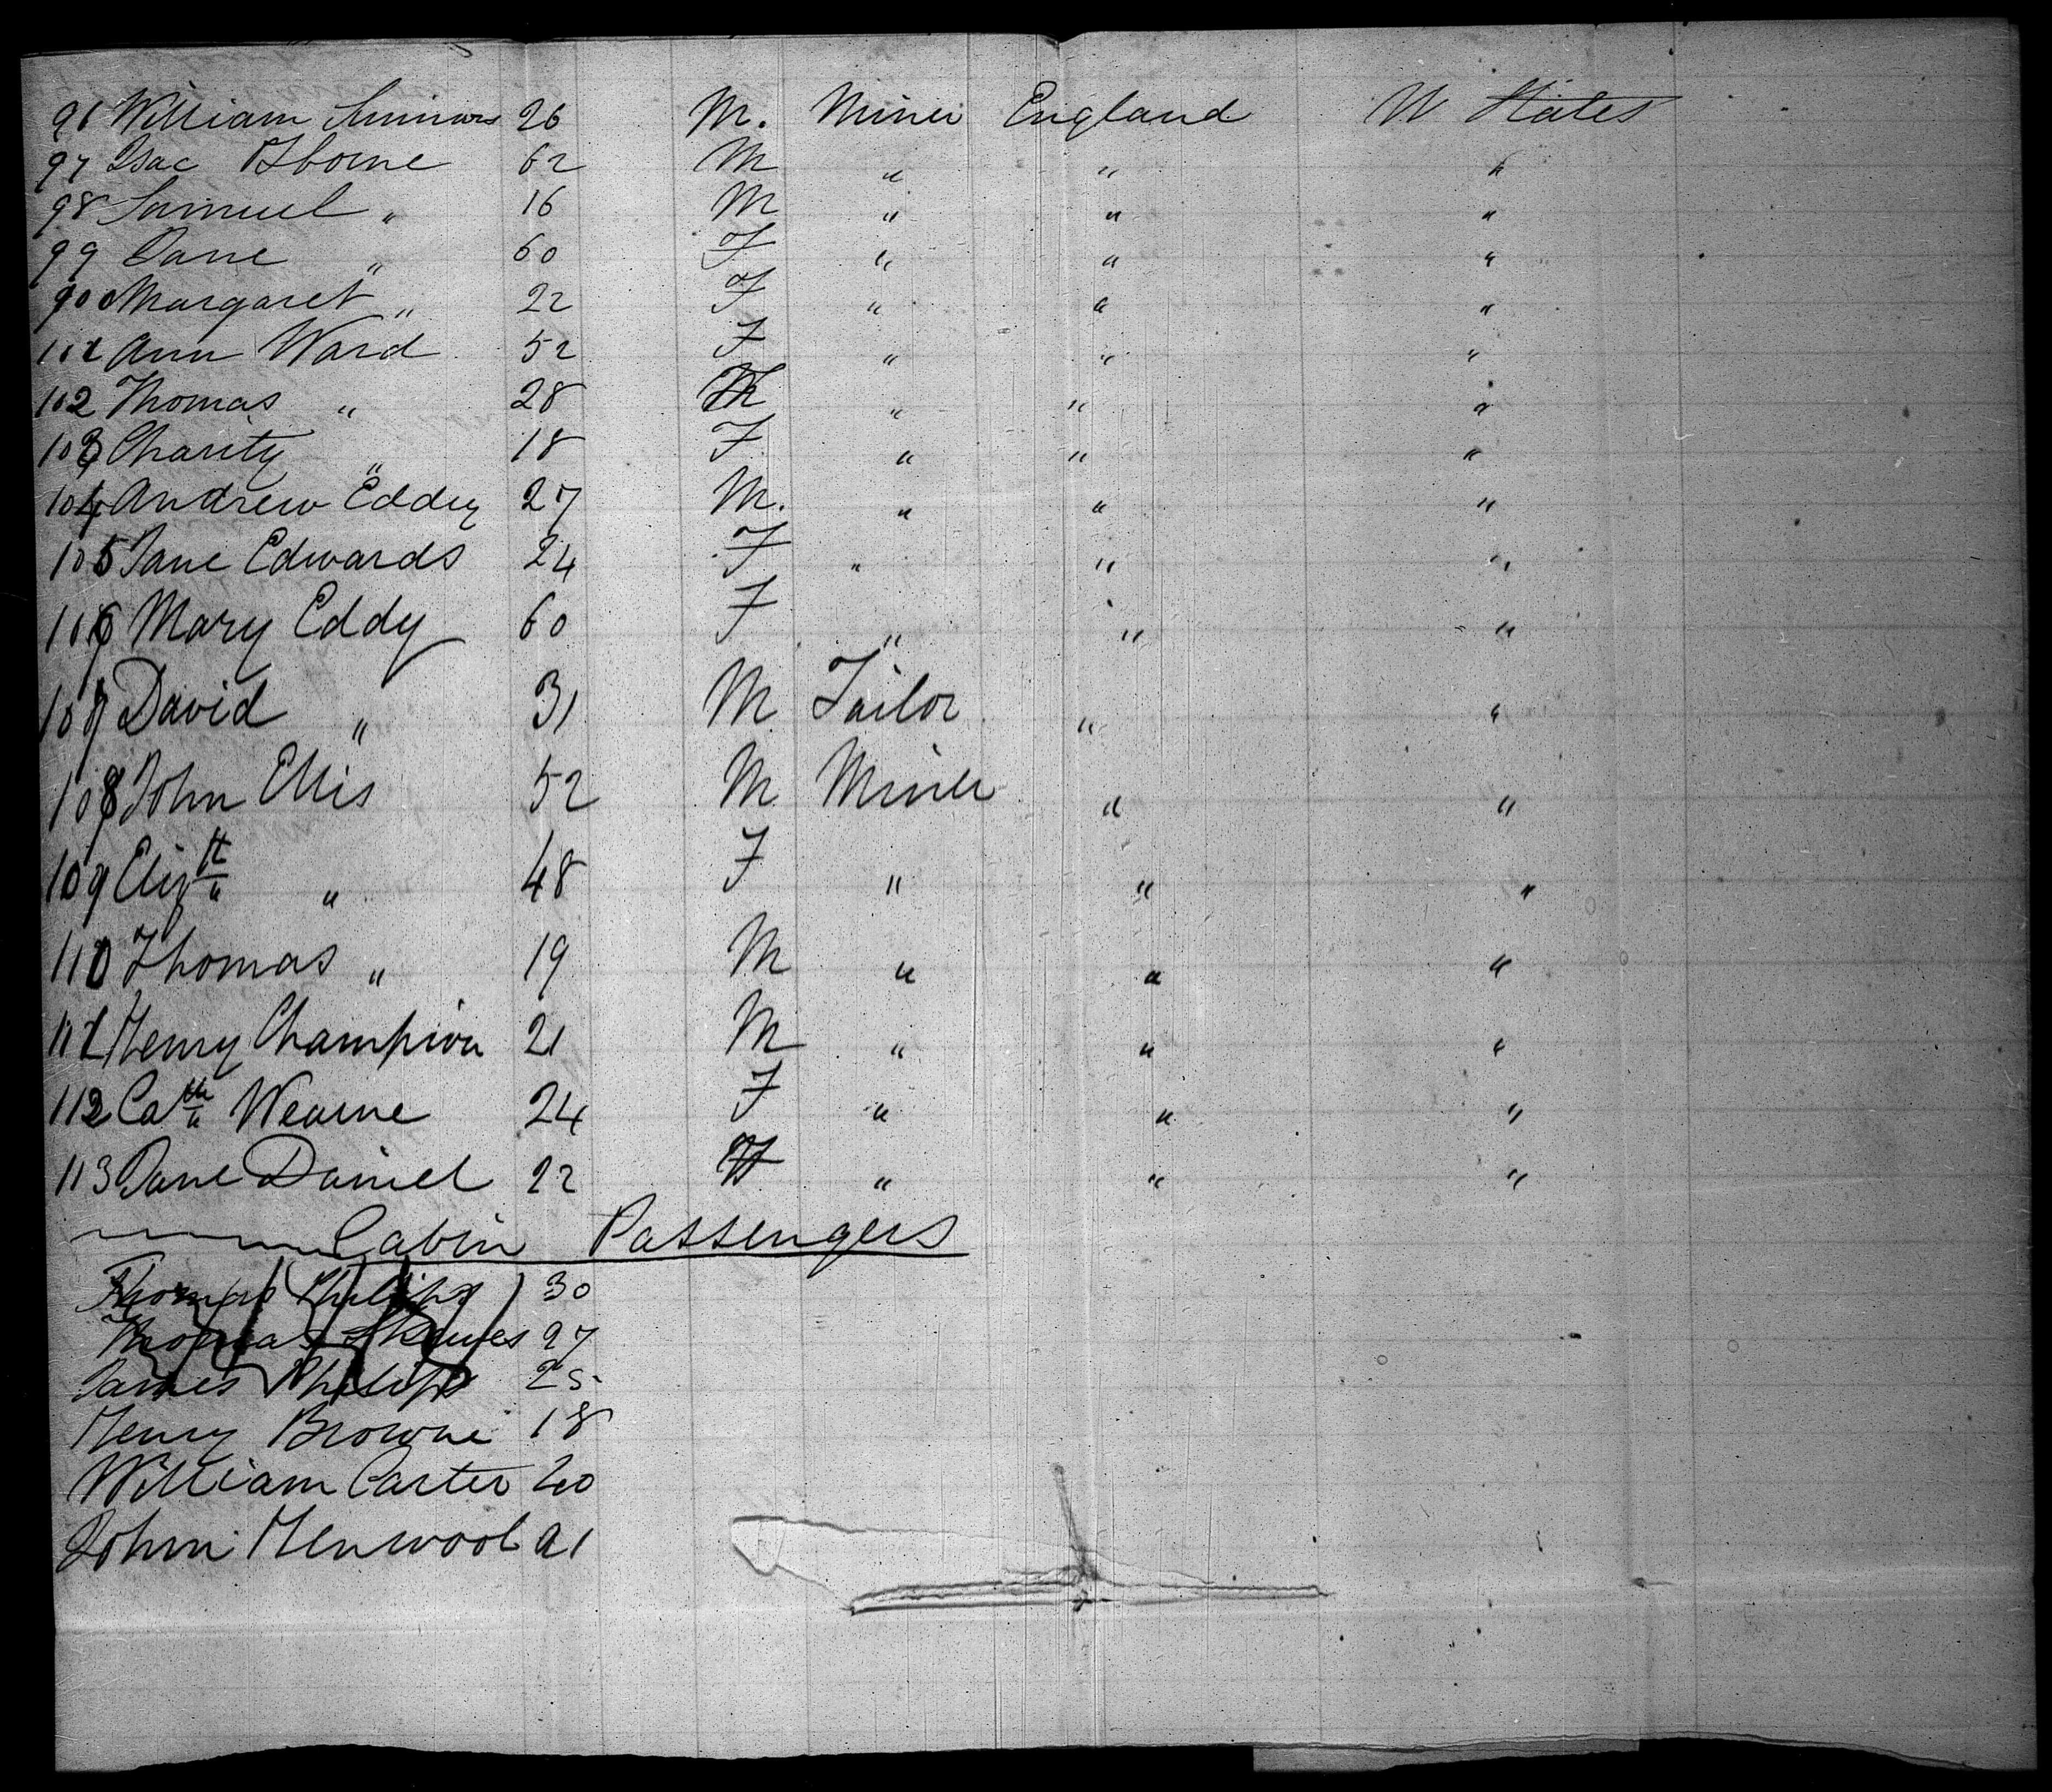 96 William Simmons 26 M. Miner England U States
97 Isac Osborne 62 M " " "
98 Samuel " 16 M " " "
99 Jane " 60 F " " "
900 Margaret " 22 F " " "
101 Ann Ward 52 F " " "
102 Thomas " 28 M " " "
103 Charity " 18 F " " "
104 Andrew Eddy 27 M. " " "
105 Jane Edwards 24 F " " "
106 Mary Eddy 60 F " " "
107 David " 31 M Tailor " "
108 John Ellis 52 M Miner " "
109 Elizth " 48 F " " "
110 Thomas " 19 M " " "
111 Henry Champion 21 M " " "
112 Cath Wearne 24 F " " "
113 Jane Daniel 22 F " " "
Cabin Passengers
Thomas Philips 30
Thomas Skewes 27
James Philips 25
Henry Browne 18
William Carter 20
John Henwood 21